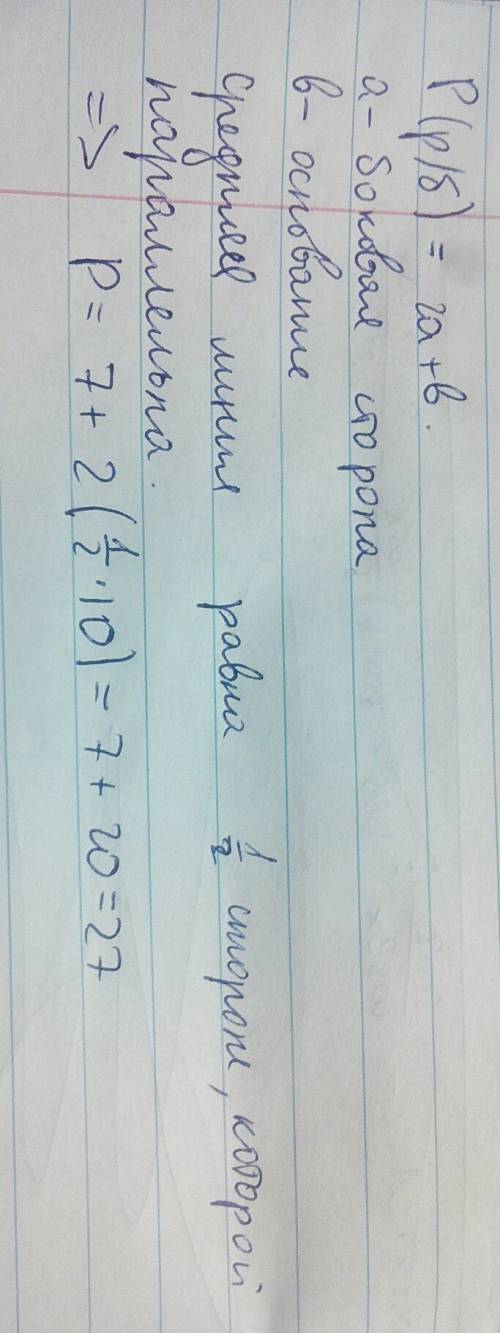 P(р/б) = 2a+b.
a - боковая сторона
b - основание
средняя линия равна 1/2 стороне, которой
параллельна.
=> P = 7 + 2(1/2 · 10) = 7 + 20 = 27